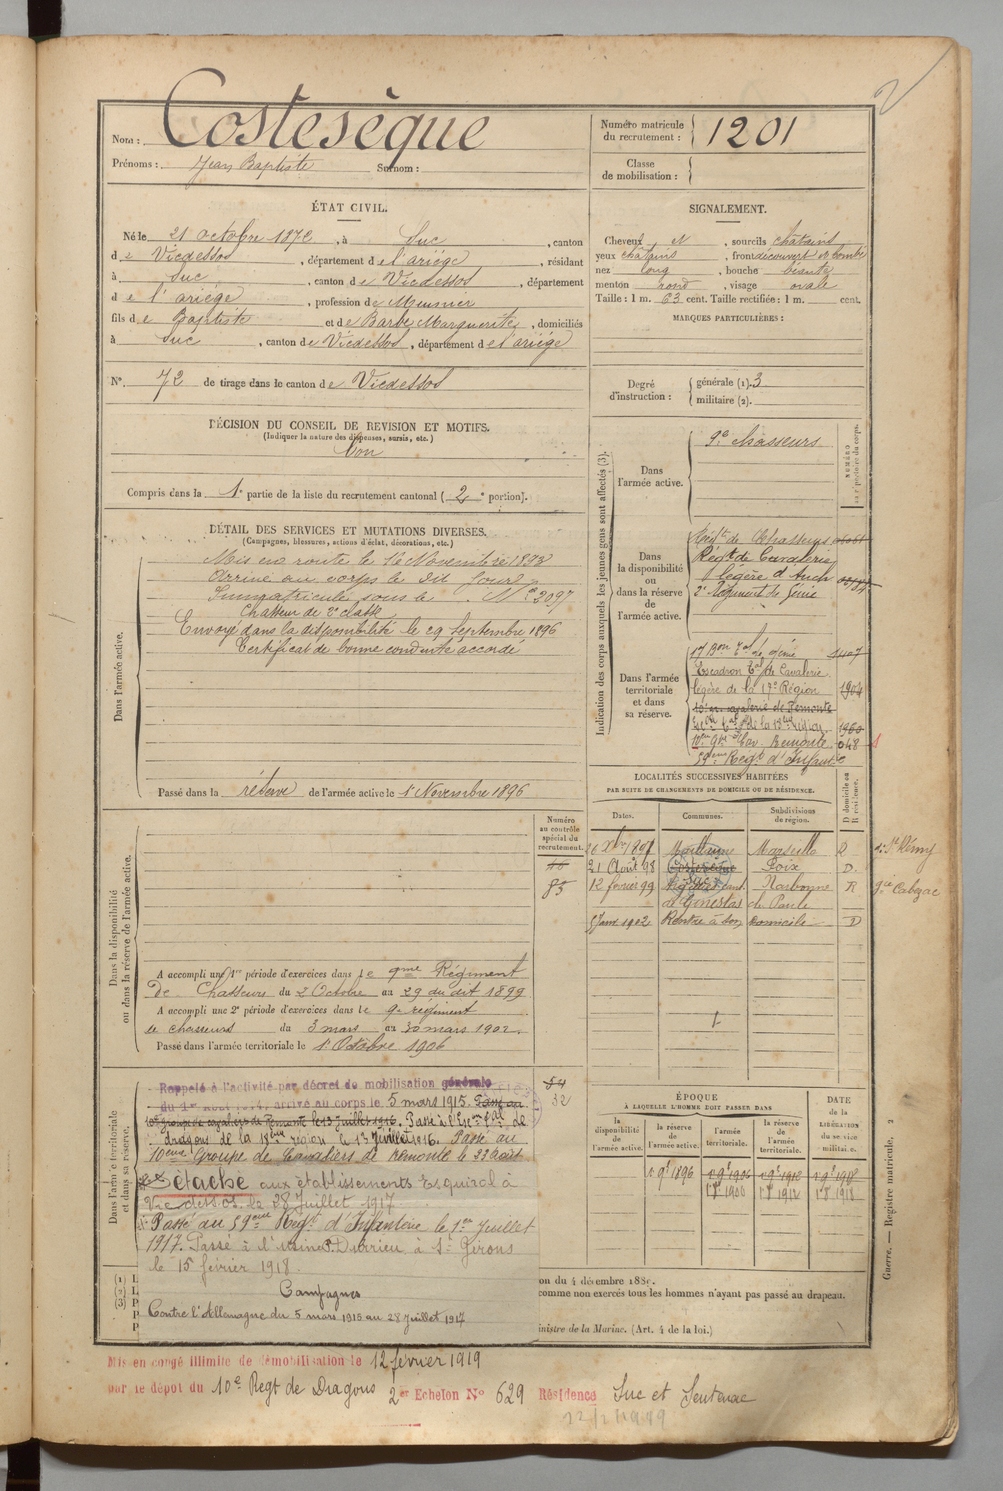 2
Nom : Costesèque
Prénoms : Jean Baptiste Surnom :
Numéro matricule du recrutement : 1201
Classe de mobilisation :
ÉTAT CIVIL.
Né le 21 octobre 1872, à Suc, canton
de Vicdessos, département de l'ariége, résidant
à Suc, canton de Vicdessos, département
de l'ariége, profession de Meunier
fils de Baptiste et de Barbe Marguerite, domiciliés
à Suc, canton de Vicdessos, département de l'ariége
N° 72 de tirage dans le canton de Vicdessos
SIGNALEMENT.
Cheveux et, sourcils chatains
yeux châtains, front découvert et bombé
nez long, bouche
menton rond, visage ovale
Taille : 1 m. 63 cent. Taille rectifiée : 1 m. cent.
MARQUES PARTICULIÈRES :
Degré d'instruction :
générale (1). 3
militaire (2).
DÉCISION DU CONSEIL DE REVISION ET MOTIFS.
(Indiquer la nature des dispenses, sursis, etc.)
Bon
Compris dans la 1e partie de la liste du recrutement cantonal (2e portion).
DÉTAIL DES SERVICES ET MUTATIONS DIVERSES.
(Campagnes, blessures, actions d'éclat, décorations, etc.)
Dans l'armée active.
Mis en route le 12 Novembre 1893
Arrivé au corps le dit jour
Immatriculé sous le N° 2097
Chasseur de 2e classe
Envoyé dans la disponibilité le 29 Septembre 1896
Certificat de bonne conduite accordé
Passé dans la réserve de l'armée active le 1r Novembre 1896
Indication des corps auxquels les jeunes gens sont affectés (3).
Dans l'armée active.
9e Chasseurs
Dans la disponibilité ou dans la réserve de l'armée active.
Régt de Chasseurs
Régt de Cavalerie
légère d'Auch
2e Régiment de Génie
Dans l'armée territoriale et dans sa réserve.
17 Bon Tal de génie 1407
Escadron Tal de Cavalerie
légère de la 17e Région 1904
10e gr. cavalerie de Remonte
de la 18e région
10eme Gpe Cav. Remonte 048
59eme Régt d'Infante
LOCALITÉS SUCCESSIVES HABITÉES
PAR SUITE DE CHANGEMENTS DE DOMICILE OU DE RÉSIDENCE.
Dates. Communes. Subdivisions de région. D domicile ou R résidence.
Marseille R
21 Août 98 Costeseque Foix D.
12 février 99 Narbonne R
de Ginestas
1902 Rentré à son domicile D
Numéro au contrôle spécial du recrutement.
85
Dans la disponibilité ou dans la réserve de l'armée active.
A accompli une 1re période d'exercices dans le 9me Régiment
De Chasseurs du 2 Octobre au 29 du dit 1899
A accompli une 2e période d'exercices dans le 9e régiment
de chasseurs du 3 mars au 30 mars 1902.
Passé dans l'armée territoriale le 1r Octobre 1906
Dans l'armée territoriale et dans sa réserve.
54
32
Rappelé à l'activité par décret de mobilisation générale
du 1er Août 1914, arrivé au corps le 5 mars 1915. Passé au
10e groupe de cavaliers de Remonte le 13 juillet 1916. Passé à l'Escon Tal de
dragons de la 18eme région le 13 Juillet 1916. Passé au
10eme Groupe de Cavaliers de remonte le 23 août
Détaché aux établissements Esquirol à
Vicdessos le 28 Juillet 1917
Passé au 59eme Régt d'Infanterie le 1er Juillet
1917. Passé à l'usine Durrieu à St Girons
le 15 février 1918.
Campagnes
Contre l'Allemagne du 5 mars 1915 au 28 Juillet 1917
ÉPOQUE
À LAQUELLE L'HOMME DOIT PASSER DANS
la disponibilité de l'armée active. la réserve de l'armée active. l'armée territoriale. la réserve de l'armée territoriale. DATE de la LIBÉRATION du service militaire.
1896 1906 1912 1918
on du 4 décembre 1889.
comme non exercés tous les hommes n'ayant pas passé au drapeau.
inistre de la Marine. (Art. 4 de la loi.)
Guerre. — Registre matricule. 2
Mis en congé illimité de démobilisation le 12 février 1919
par le dépôt du 10e Regt de Dragons 2er Echelon N° 629 Résidence Suc et Sentenac